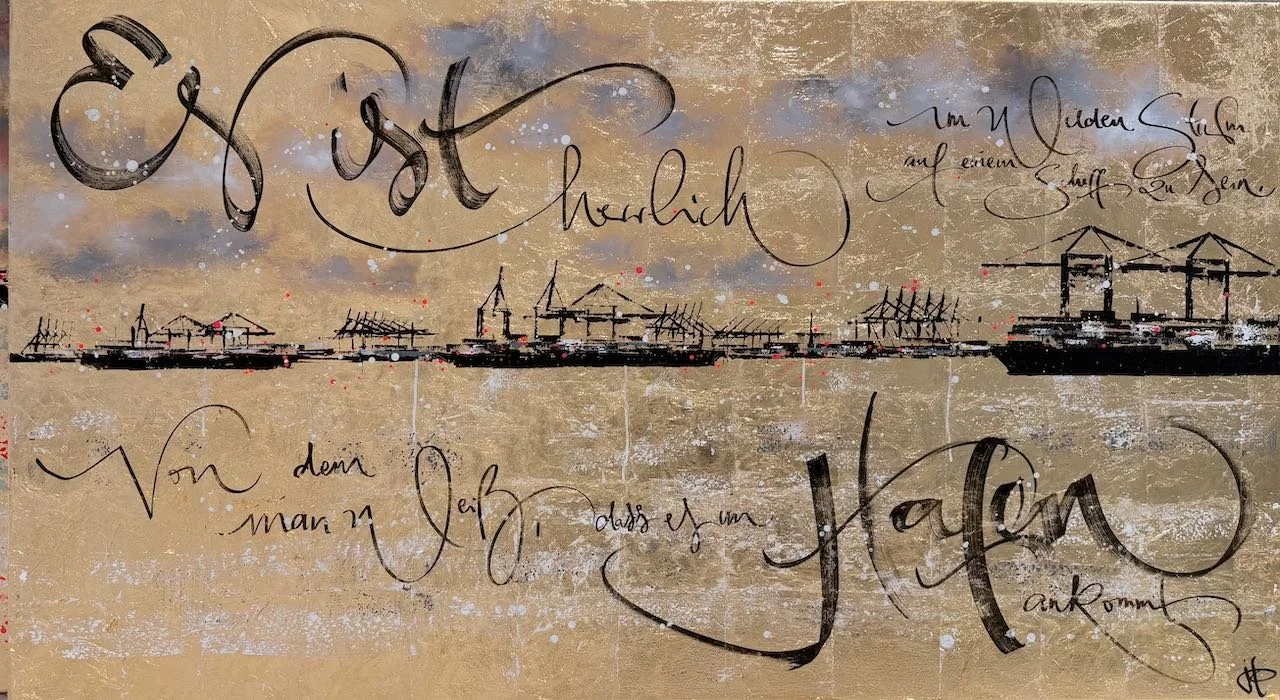 Es ist
herrlich
im Wilden Sturm
auf einem
Schiff zu sein,
Von dem
man Weiß,
dass es im
Hafen
ankommt